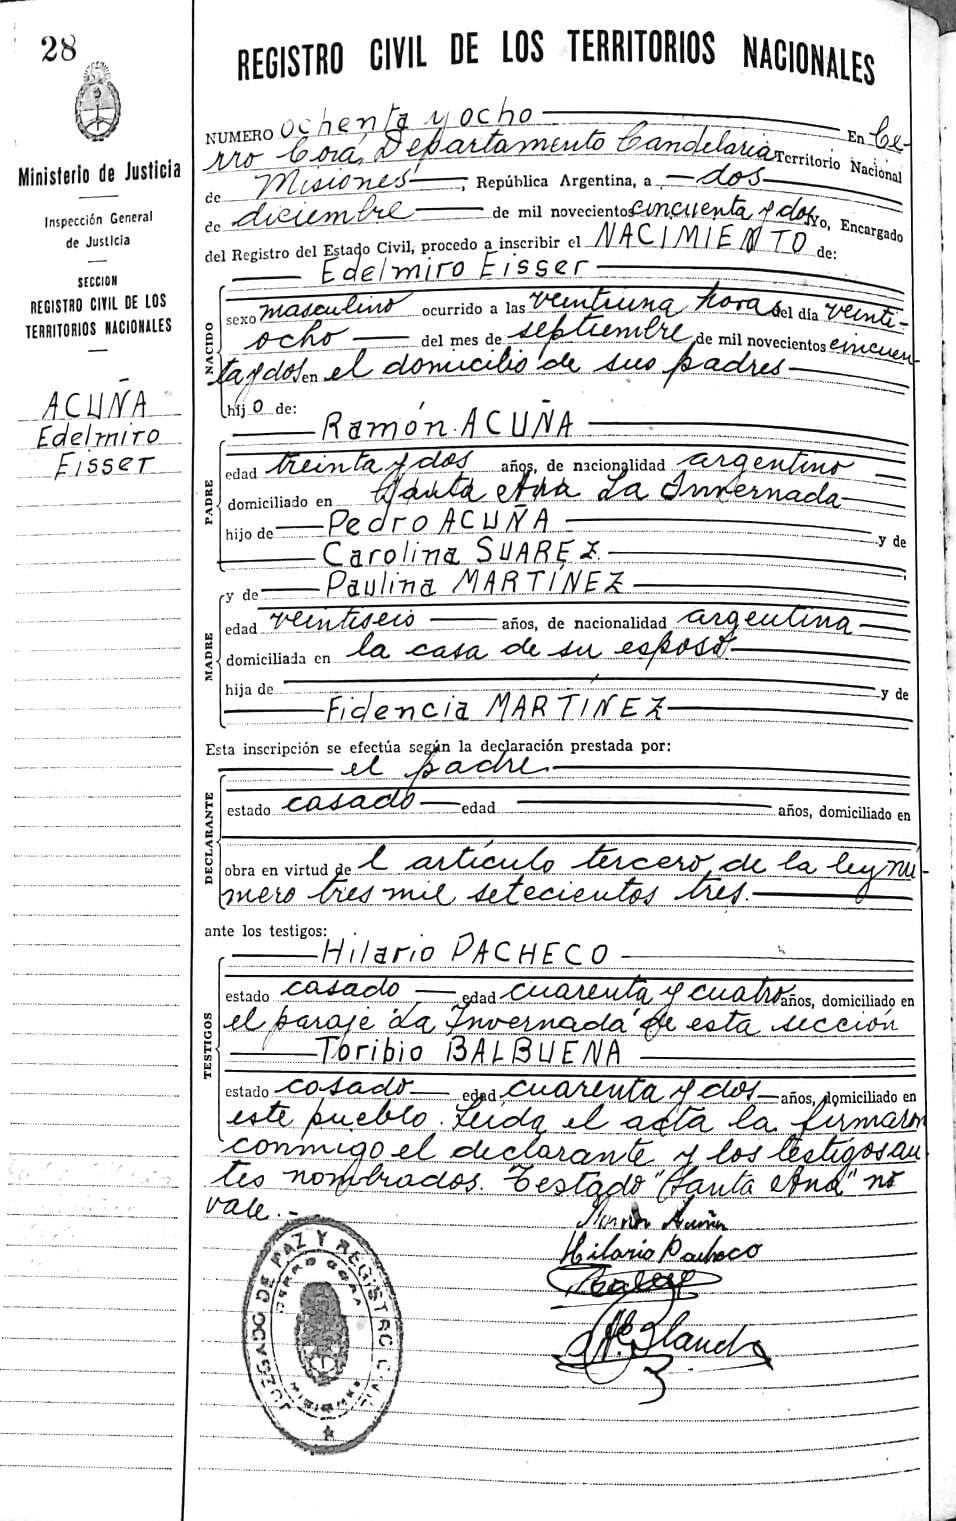 28
REGISTRO CIVIL DE LOS TERRITORIOS NACIONALES
Ministerio de Justicia
Inspección General
de Justicia
SECCION
REGISTRO CIVIL DE LOS
TERRITORIOS NACIONALES
ACUÑA
Edelmiro
Eisser
NUMERO ochenta y ocho En Ce-
rro Corá, Departamento Candelaria Territorio Nacional
de Misiones, República Argentina, a dos
de diciembre de mil novecientos cincuenta y dos Yo, Encargado
del Registro del Estado Civil, procedo a inscribir el NACIMIENTO de:
Edelmiro Eisser
NACIDO
sexo masculino ocurrido a las veintiuna horas del día veinti-
ocho del mes de septiembre de mil novecientos cincuen
ta y dos en el domicilio de sus padres
hijo de:
Ramón ACUÑA
PADRE
edad treinta y dos años, de nacionalidad argentino
domiciliado en Santa Ana La Invernada
hijo de Pedro ACUÑA y de
Carolina SUAREZ.
y de Paulina MARTÍNEZ
MADRE
edad veintiseis años, de nacionalidad argentina
domiciliada en la casa de su esposo
hija de y de
Fidencia MARTÍNEZ
Esta inscripción se efectúa según la declaración prestada por:
el padre.
DECLARANTE
estado casado edad años, domiciliado en
obra en virtud de l artículo tercero, de la ley nú-
mero tres mil setecientos tres.
ante los testigos:
Hilario PACHECO
TESTIGOS
estado casado edad cuarenta y cuatro años, domiciliado en
el paraje "La Invernada" de esta sección
Toribio BALBUENA
estado casado edad cuarenta y dos años, domiciliado en
este pueblo. Leída el acta la firmaron
conmigo el declarante y los testigos an
tes nombrados. Testado "Santa Ana" no
vale.-
Ramón Acuña
Hilario Pacheco
JUZGADO DE PAZ Y REGISTRO CIVIL
CERRO CORA
MISIONES